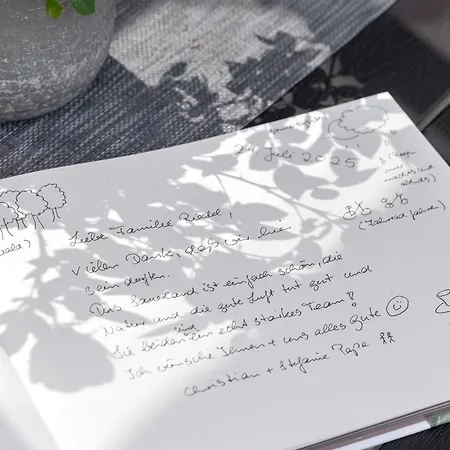 24 Juli 2025
(Regen
nur
nachts und
abends)
(Fahrrad fahren)
Wald)
Liebe Familie Riedel,
Vielen Dank, daß wir hier
sein durften.
Das Sauerland ist einfach schön, die
Natur und die gute Luft tut gut und
Sie beiden sind ein echt starkes Team!
Ich wünsche Ihnen + uns alles Gute
Christian + Stefanie Pape